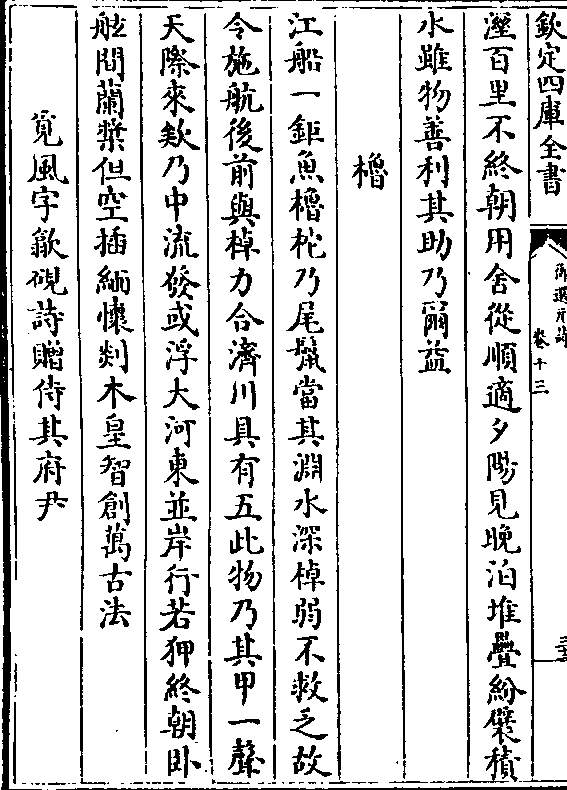 欽定四庫全書
御選元詩
卷十三
三
溼百里不終朝用舍從順適夕陽見晚泊堆疊紛襞積
水雖物善利其助乃爾益
櫓
江船一鉅魚櫓柁乃尾鬣當其淵水深棹弱不救乏故
令施航後前與棹力合濟川具有五此物乃其甲一聲
天際來欸乃中流發或浮大河東並岸行若狎終朝卧
舷間蘭槳但空插緬懷剡木皇智創萬古法
覓風字歙硯詩贈侍其府尹